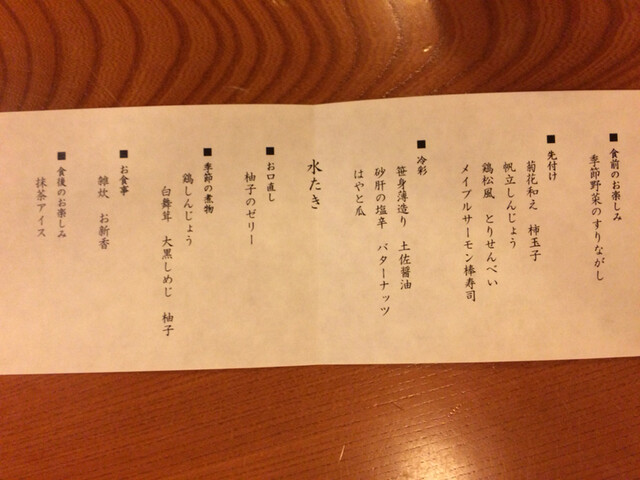 ■食前のお楽しみ
季節野菜のすりながし
■先付け
菊花和え　柿玉子
帆立しんじょう
鶏松風　とりせんべい
メイプルサーモン棒寿司
■冷彩
笹身薄造り　土佐醤油
砂肝の塩辛　バターナッツ
はやと瓜
水たき
■お口直し
柚子のゼリー
■季節の煮物
鶏しんじょう
白舞茸　大黒しめじ　柚子
■お食事
雑炊　お新香
■食後のお楽しみ
抹茶アイス